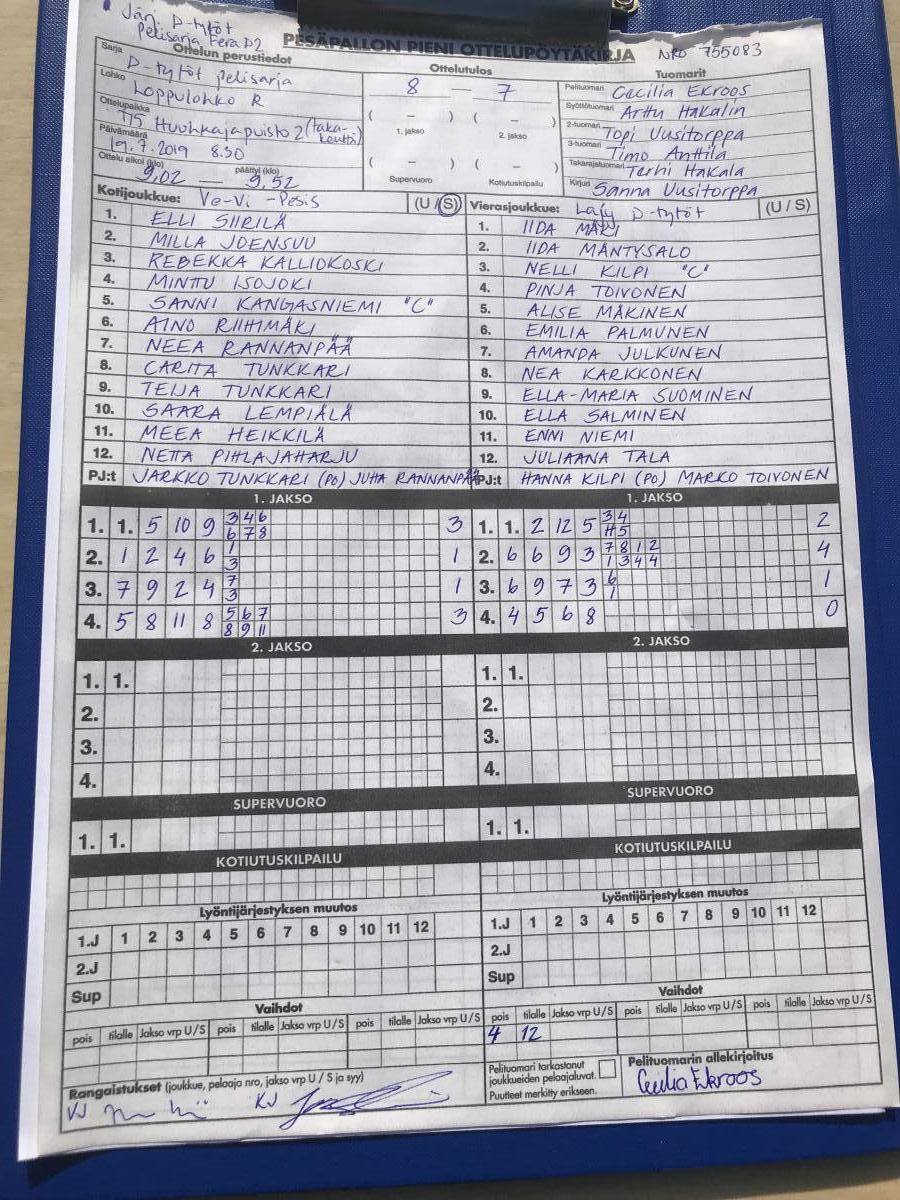 Jär. D-tytöt
Pelisarja Fera D2
PESÄPALLON PIENI OTTELUPÖYTÄKIRJA NRO 755083
Ottelun perustiedot Ottelutulos Tuomarit
Sarja D-tytöt pelisarja
Lohko Loppulohko R
Ottelupaikka T75 Huuhkajapuisto 2 (taka-kenttä)
Päivämäärä 19.7.2019 8.30
Ottelu alkoi (klo) 9.02 — päättyi (klo) 9.52
8 — 7
( – ) ( – )
1. jakso 2. jakso
( – ) ( – )
Supervuoro Kotiutuskilpailu
Pelituomari Cecilia Ekroos
Syöttötuomari Arttu Hakalin
2-tuomari Topi Uusitorppa
3-tuomari Timo Anttila
Takarajatuomari Terhi Hakala
Kirjuri Sanna Uusitorppa
Kotijoukkue: Ve-Vi -Pesis (U / S)
1. ELLI SIIRILÄ
2. MILLA JOENSUU
3. REBEKKA KALLIOKOSKI
4. MINTTU ISOJOKI
5. SANNI KANGASNIEMI "C"
6. AINO RIIHIMÄKI
7. NEEA RANNANPÄÄ
8. CARITA TUNKKARI
9. TEIJA TUNKKARI
10. SAARA LEMPIÄLÄ
11. MEEA HEIKKILÄ
12. NETTA PIHLAJAHARJU
PJ:t JARKKO TUNKKARI (PO) JUHA RANNANPÄÄ
Vierasjoukkue: LaJy D-tytöt (U / S)
1. IIDA MÄKI
2. IIDA MÄNTYSALO
3. NELLI KILPI "C"
4. PINJA TOIVONEN
5. ALISE MÄKINEN
6. EMILIA PALMUNEN
7. AMANDA JULKUNEN
8. NEA KARKKONEN
9. ELLA-MARIA SUOMINEN
10. ELLA SALMINEN
11. ENNI NIEMI
12. JULIAANA TALA
PJ:t HANNA KILPI (PO) MARKO TOIVONEN
1. JAKSO
1. 1. 5 10 9 3 4 6 3
6 7 8
2. 1 2 4 6 1 1
3
3. 7 9 2 4 7 1
3
4. 5 8 11 8 5 6 7 3
8 9 11
1. JAKSO
1. 1. 2 12 5 3 4 2
H 5
2. 6 6 9 3 7 8 1 2 4
1 3 4 4
3. 6 9 7 3 6 1
1
4. 4 5 6 8 0
2. JAKSO
1. 1.
2.
3.
4.
2. JAKSO
1. 1.
2.
3.
4.
SUPERVUORO
1. 1.
SUPERVUORO
1. 1.
KOTIUTUSKILPAILU
KOTIUTUSKILPAILU
Lyöntijärjestyksen muutos
1.J 1 2 3 4 5 6 7 8 9 10 11 12
2.J
Sup
Lyöntijärjestyksen muutos
1.J 1 2 3 4 5 6 7 8 9 10 11 12
2.J
Sup
Vaihdot
pois tilalle Jakso vrp U / S pois tilalle Jakso vrp U / S pois tilalle Jakso vrp U / S
Vaihdot
pois tilalle Jakso vrp U / S pois tilalle Jakso vrp U / S pois tilalle Jakso vrp U / S
4 12
Rangaistukset (joukkue, pelaaja nro, jakso vrp U / S ja syy)
KJ KJ
Pelituomari tarkastanut
joukkueiden pelaajaluvat.
Puutteet merkitty erikseen.
Pelituomarin allekirjoitus
Cecilia Ekroos